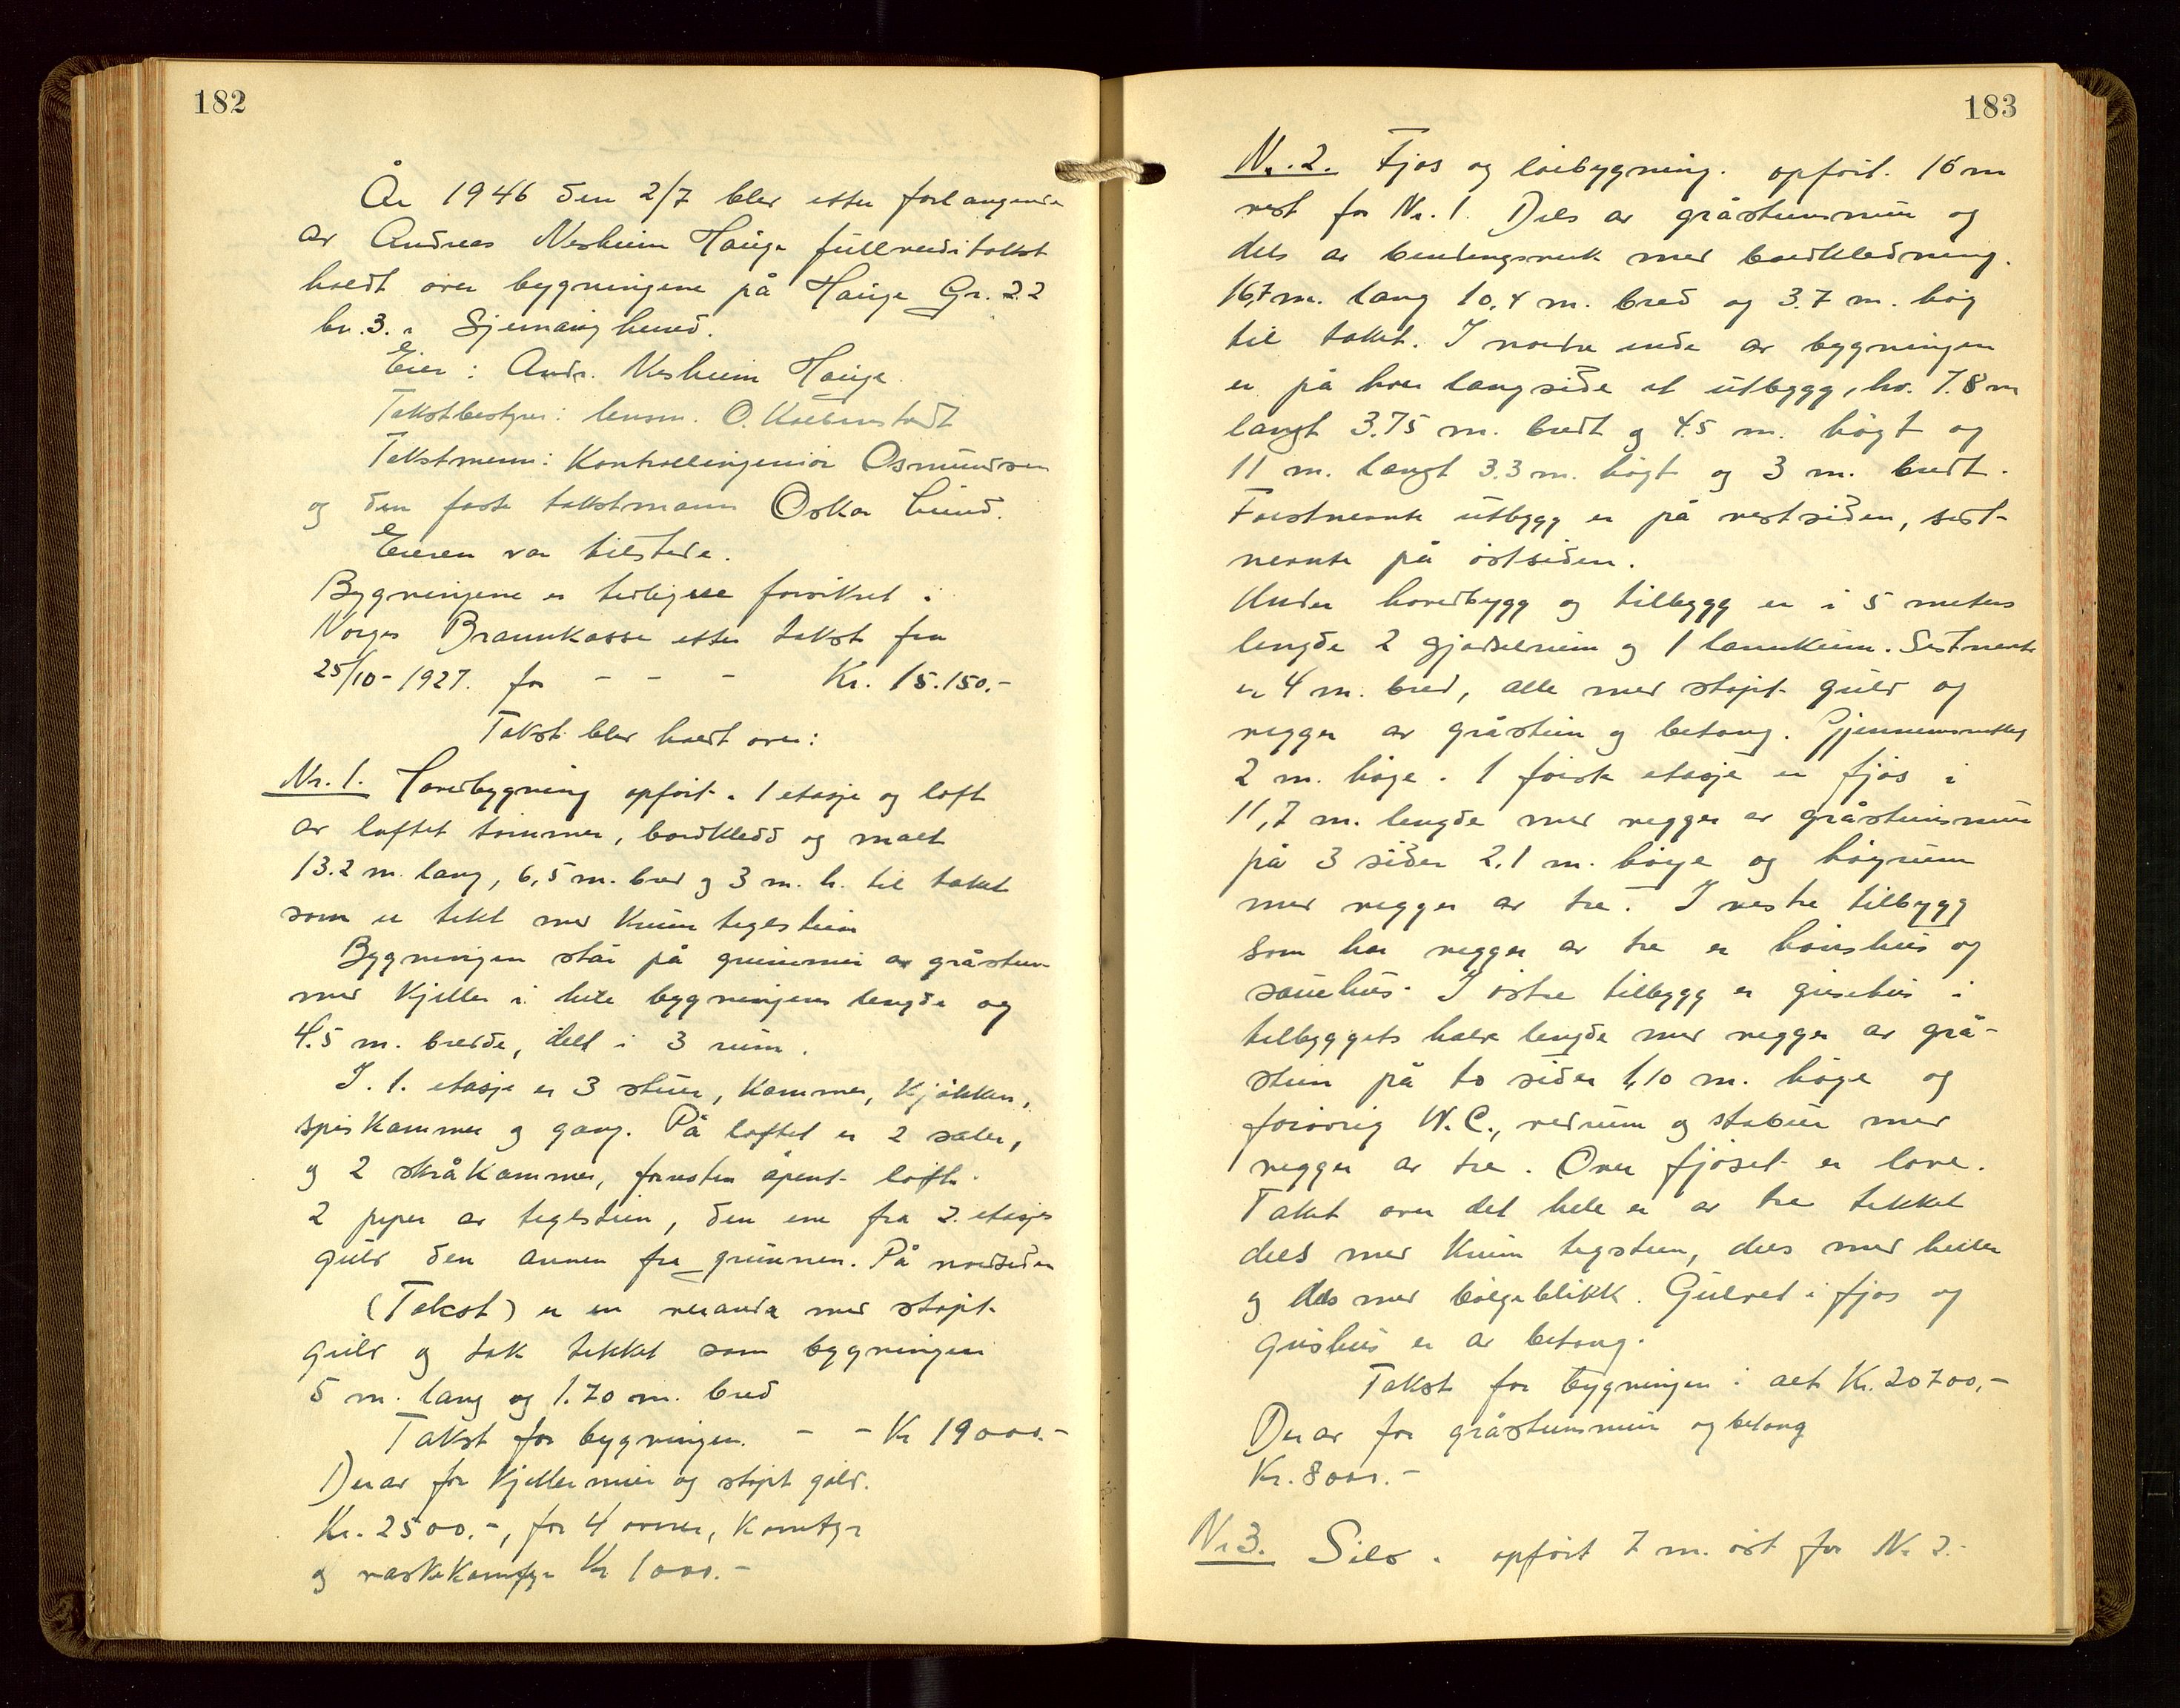 182
År 1946 den 2/7 blev etter forlangende
av Andreas Nesheim Hauge fullverditakst
holdt over bygningene på Hauge Gr. 22
br. 3. i Sjernarøy herred.
Eier: Andr. Nesheim Hauge.
Takstbestyrer: lensm. O.
Takstmenn: Kontrollingeniør Osmundsen
og den faste takstmann Oskar Lund.
Eieren var tilstede.
Bygningene er tidligere forsikret i
Norges Brannkasse etter takst fra
25/10-1927. for - - - Kr. 15.150.-
Takst blev holdt over:
Nr. 1. Hovedbygning opført i 1 etasje og loft
av laftet tømmer, bordkledd og malt
13.2 m. lang, 6,5 m. bred og 3 m. h. til taket
som er tekt med krum teglstein
Bygningen står på grunnmur av gråstein
med kjeller i hele bygningens lengde og
4.5 m. bredde, delt i 3 rum.
I. 1. etasje er 3 stuer, kammer, kjøkken,
spiskammer og gang. På loftet er 2 saler,
og 2 skråkammer, forresten åpent loft.
2 piper av teglstein, den ene fra 2. etasjes
gulv den annen fra grunnen. På nordsiden
(Takst) er en veranda med støpt
gulv og tak tekket som bygningen
5 m. lang og 1.70 m. bred
Takst for bygningen. - - Kr 19000.-
Derav for kjellermur og støpt golv.
Kr. 2500.-, for 4 ovner, komfyr
og vaskekomfyr Kr 1000.-
183
Nr. 2. Fjøs og løebygning. opført. 16 m
vest for Nr. 1. Dels av gråsteinsmur og
dels av bendingsverk med bordkledning.
16,7 m. lang 10,4 m. bred og 3.7 m. høg
til taket. I nordre ende av bygningen
er på hver langside et utbygg, hv. 7.8 m
langt 3.75 m. bredt og 4.5 m. høgt og
11 m. langt 3.3 m. høgt og 3 m. bredt.
Førstnevnte utbygg er på vestsiden, sist-
nevnte på østsiden.
Under hovedbygg og tilbygg er i 5 meters
lengde 2 gjødselrum og 1 lannkum. Sistnevnte
er 4 m. bred, alle med støpt gulv og
vegger av gråstein og betong. Gjennemsnittlig
2 m. høge. I første etasje er fjøs i
11,7 m. lengde med vegger av gråsteinsmur
på 3 sider 2.1 m. høge og høyrum
med vegger av tre. I vestre tilbygg
som har vegger av tre er hønshus og
sauehus. I østre tilbygg er grisehus i
tilbyggets halve lengde med vegger av grå-
stein på to sider 1,10 m. høge og
forøvrig W.C., vedrum og stabur med
vegger av tre. Over fjøset er løve.
Taket over det hele er av tre tekket
dels med krum tegstein, dels med heller
og dels med bølgeblikk. Gulvet i fjøs og
grishus er av betong.
Takst for bygningen i alt Kr. 20700,-
Derav for gråsteinsmur og betong
Kr. 8000.-
Nr 3. Silo. opført 7 m. øst for Nr 2.-